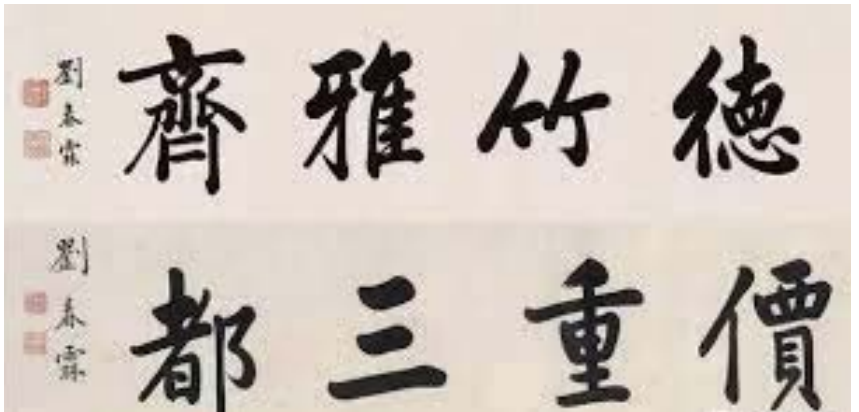 德竹雅齊
劉春霖
價重三都
劉春霖